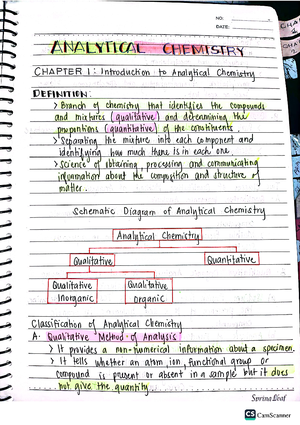 NO:
DATE:
ANALYTICAL CHEMISTRY
CHAPTER 1: Introduction to Analytical Chemistry
DEFINITION:
> Branch of chemistry that identifies the compounds
and mixtures (qualitative) and determining the
proportions (quantitative) of the constituents.
> Separating the mixture into each component and
identifying how much there is in each one.
> Science of obtaining, processing and communicating
information about the composition and structure of
matter.
Schematic Diagram of Analytical Chemistry
Analytical Chemistry
Qualitative Quantitative
Qualitative Inorganic
Qualitative Organic
Classification of Analytical Chemistry
A. Qualitative Method of Analysis
> It provides a non-numerical information about a specimen.
> It tells whether an atom, ion, functional group or
compound is present or absent in a sample but it does
not give the quantity.
Spring Leaf
CS CamScanner
CHA